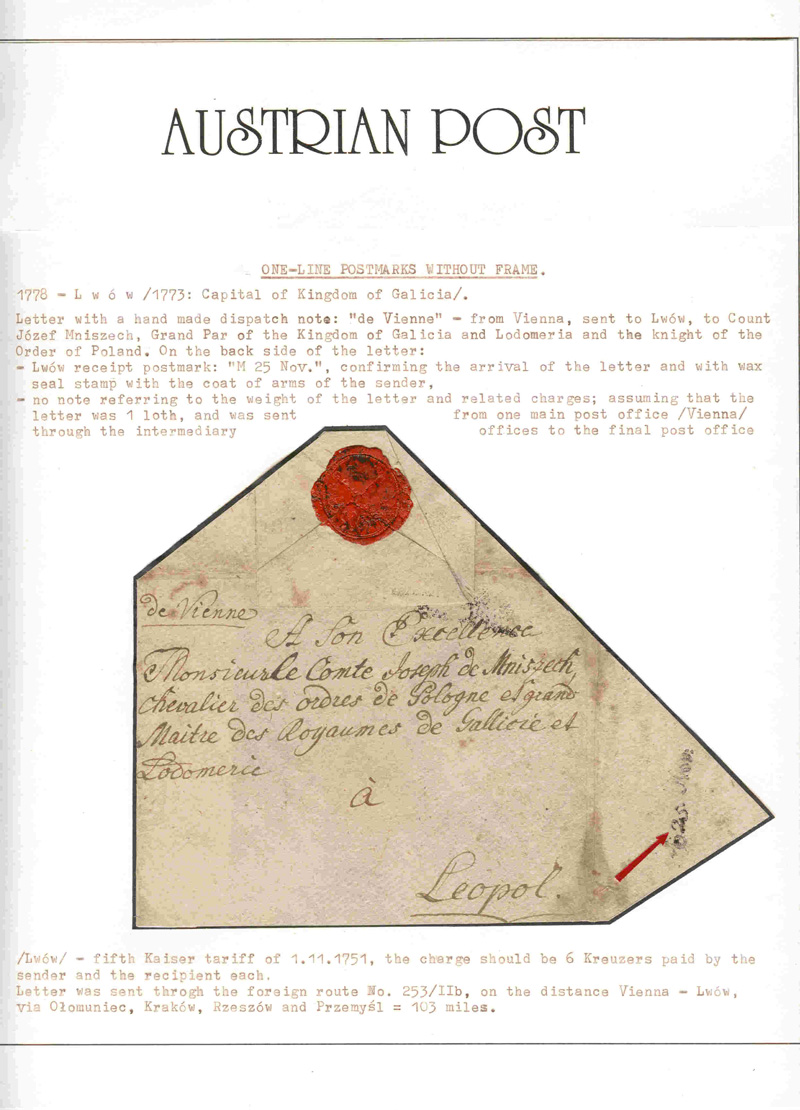 AUSTRIAN POST
ONE-LINE POSTMARKS WITHOUT FRAME.
1778 - L w ó w /1773: Capital of Kingdom of Galicia/.
Letter with a hand made dispatch note: "de Vienne" - from Vienna, sent to Lwów, to Count
Józef Mniszech, Grand Par of the Kingdom of Galicia and Lodomeria and the knight of the
Order of Poland. On the back side of the letter:
- Lwów receipt postmark: "M 25 Nov.", confirming the arrival of the letter and with wax
seal stamp with the coat of arms of the sender,
- no note referring to the weight of the letter and related charges; assuming that the
letter was 1 loth, and was sent from one main post office /Vienna/
through the intermediary offices to the final post office
de Vienne
A Son Excellence
Monsieur le Comte Joseph de Mniszech
Chevalier des ordres de Pologne et grand
Maitre des Royaumes de Gallicie et
Lodomerie
à
Leopol.
25. Nov
/Lwów/ - fifth Kaiser tariff of 1.11.1751, the charge should be 6 Kreuzers paid by the
sender and the recipient each.
Letter was sent throgh the foreign route No. 253/IIb, on the distance Vienna - Lwów,
via Ołomuniec, Kraków, Rzeszów and Przemyśl = 103 miles.